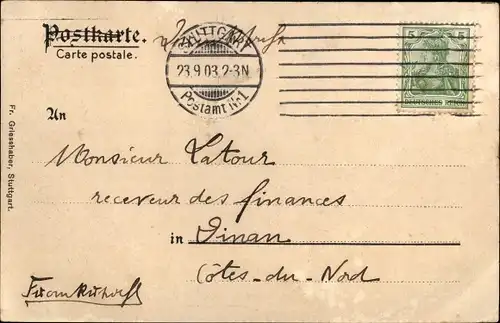 Postkarte.
Carte postale.
STUTTGART
23.9.03.2-3N
Postamt No1
5 5
DEUTSCHES REICH
An
Monsieur Latour
receveur des finances
in Dinan
Côtes-du-Nord
Frankreich
Fr. Griesshaber, Stuttgart.